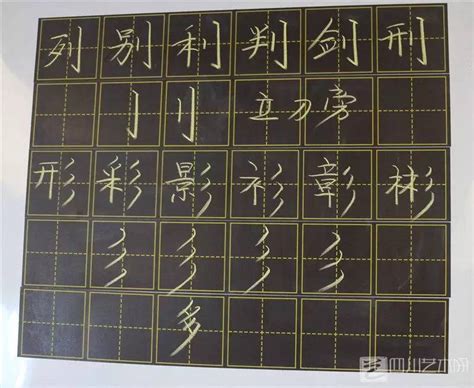 列别利判剑刑
刂 立刀旁
形彩影衫彰彬
彡彡彡彡
多
四川艺术网